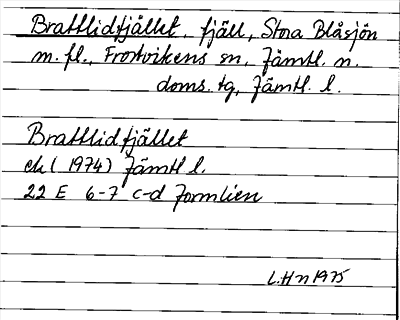 Brattlidfjället, fjäll, Stora Blåsjön
m. fl., Frostvikens sn, Jämtl. n.
doms. tg, Jämtl. l.
Brattlidfjället
ek (1974) Jämtl l.
22 E 6-7 c-d Jormlien
L.Hn 1975